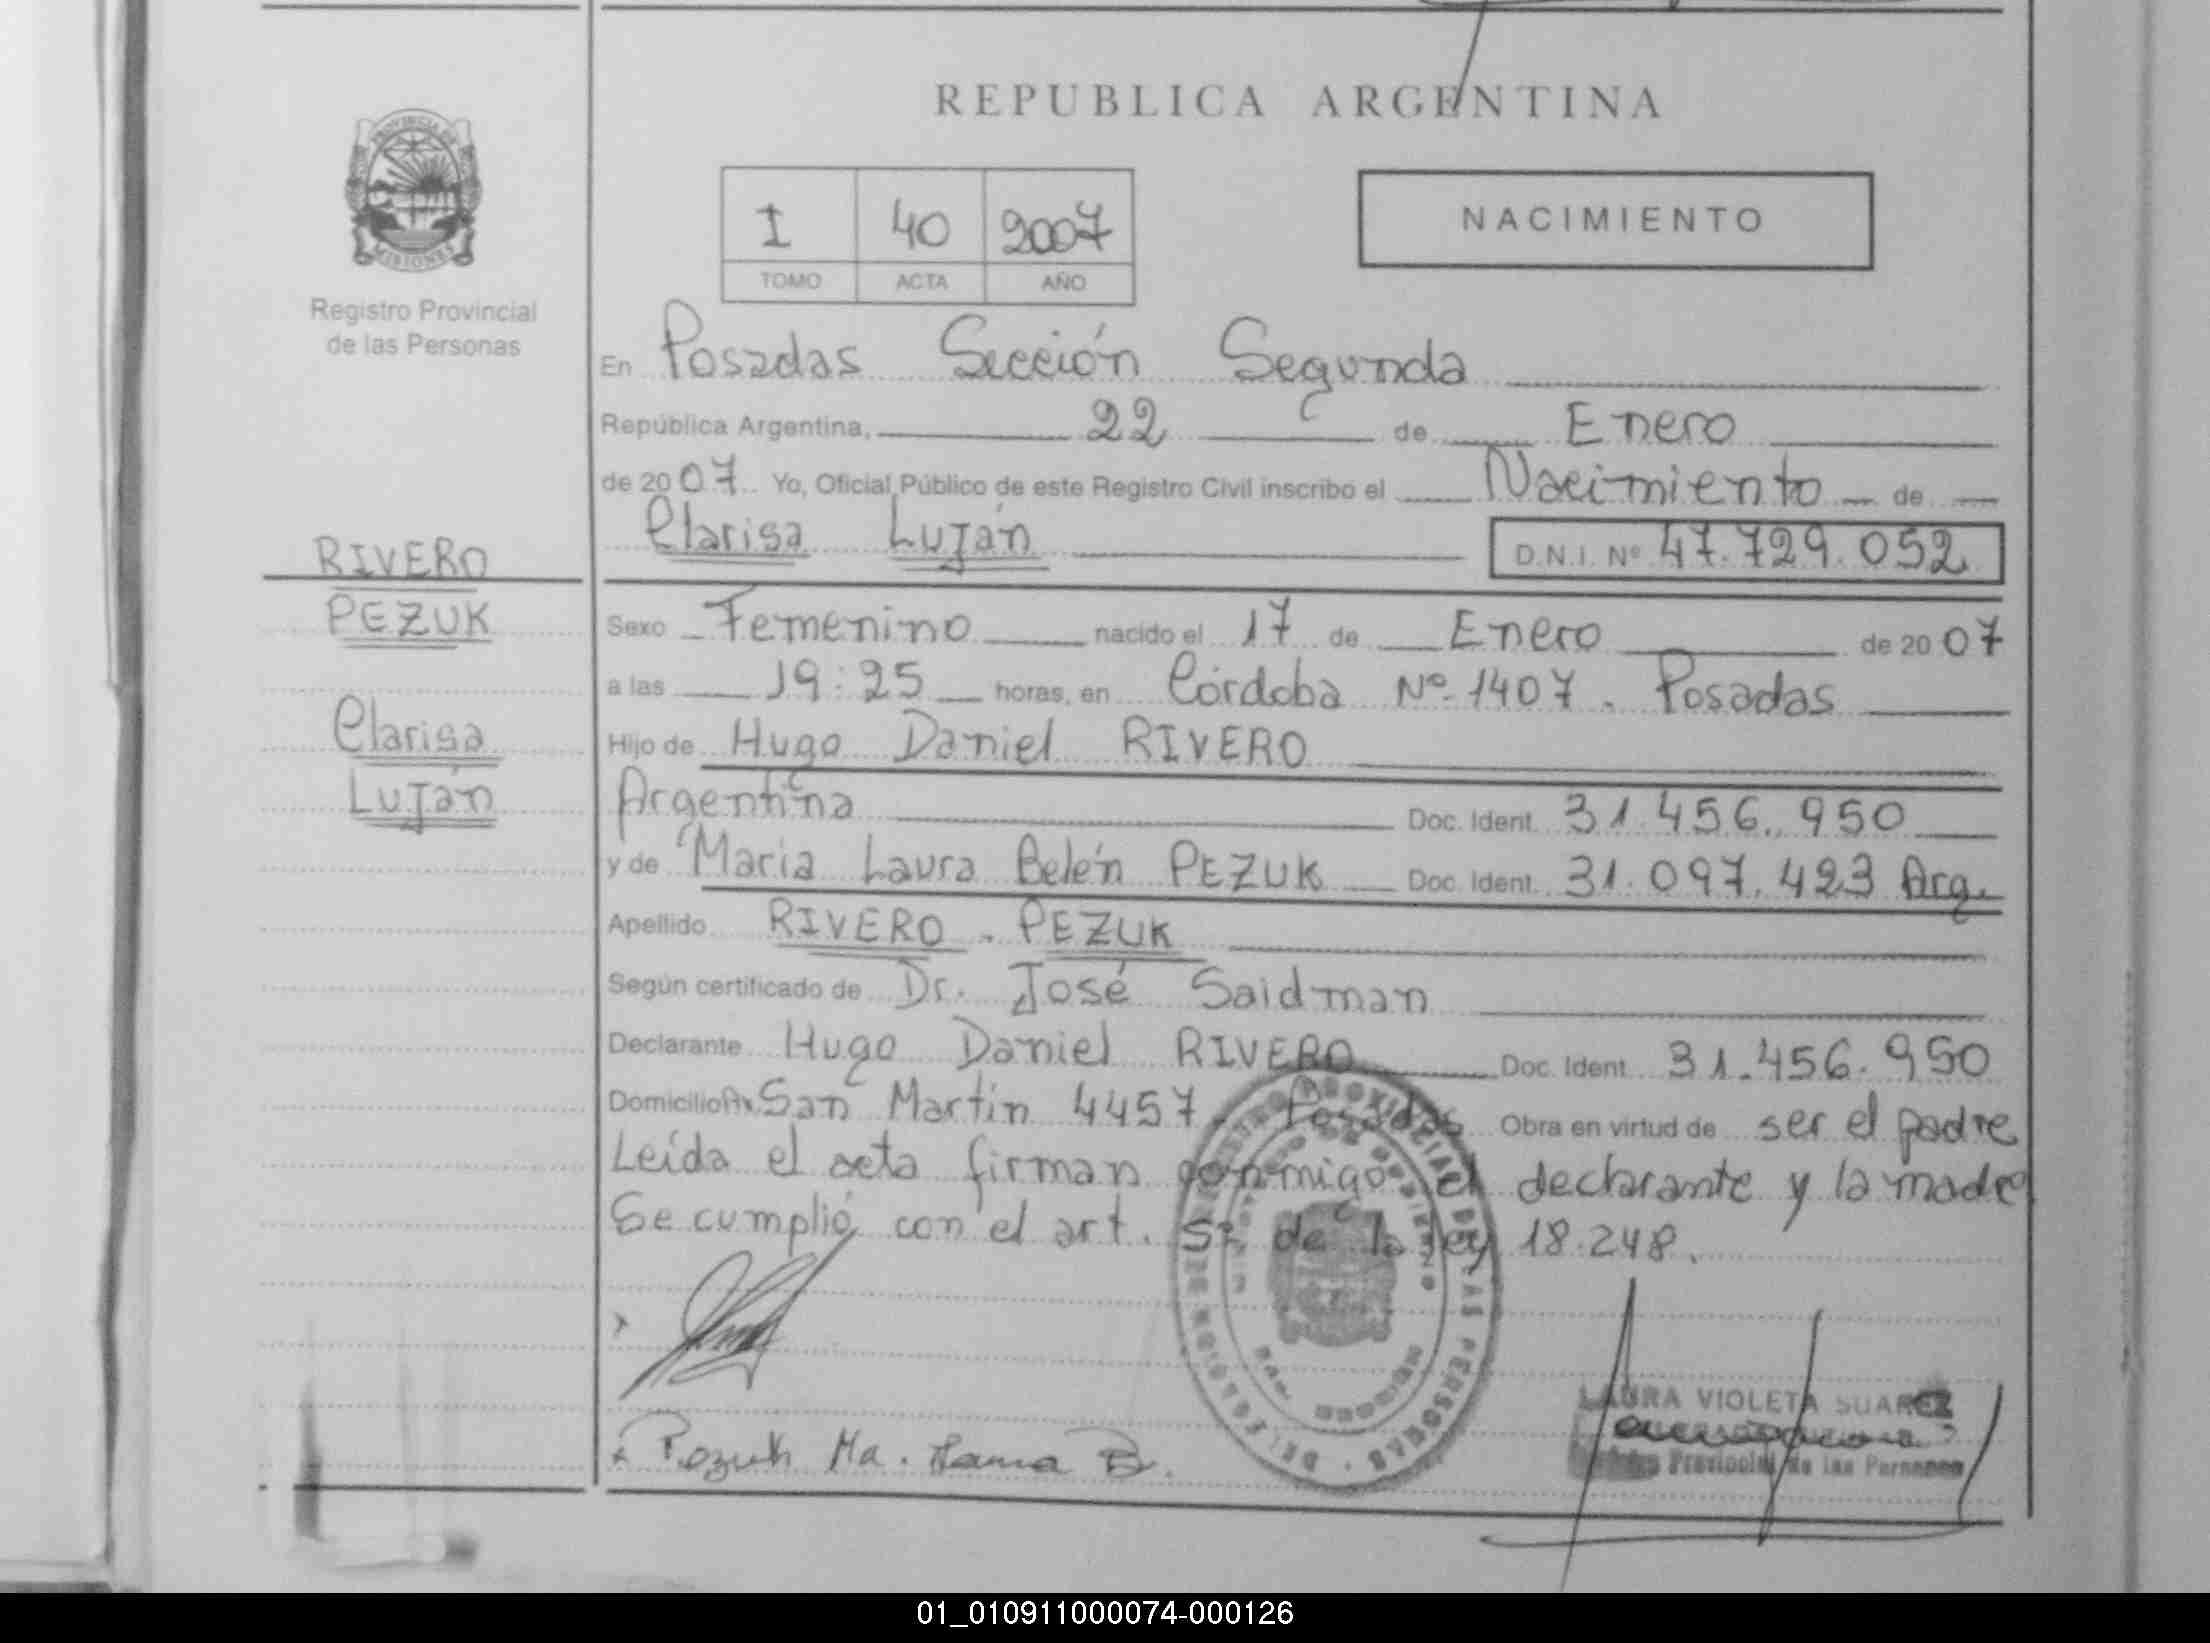 REPUBLICA ARGENTINA
PROVINCIA DE
MISIONES
Registro Provincial
de las Personas
I 40 2007
TOMO ACTA AÑO
NACIMIENTO
En Posadas Sección Segunda
República Argentina, 22 de Enero
de 2007 Yo, Oficial Público de este Registro Civil inscribo el Nacimiento de
Clarisa Luján D.N.I. Nº 47.729.052
RIVERO
PEZUK
Clarisa
Luján
Sexo Femenino nacido el 17 de Enero de 2007
a las 19:25 horas, en Córdoba Nº 1407. Posadas
Hijo de Hugo Daniel RIVERO
Argentina Doc. Ident. 31.456.950
y de Maria Laura Belén PEZUK Doc. Ident. 31.097.423 Arg.
Apellido RIVERO - PEZUK
Según certificado de Dr. José Saidman
Declarante Hugo Daniel RIVERO Doc. Ident. 31.456.950
Domicilio Av. San Martín 4457. Posadas Obra en virtud de ser el padre
Leída el acta firman conmigo el declarante y la madre
Se cumplió con el art. 5º de la ley 18.248.
Pezuk Ma. Laura B.
REGISTRO PROVINCIAL DE LAS PERSONAS
LAURA VIOLETA SUAREZ
Provincial de las Personas
01_010911000074-000126